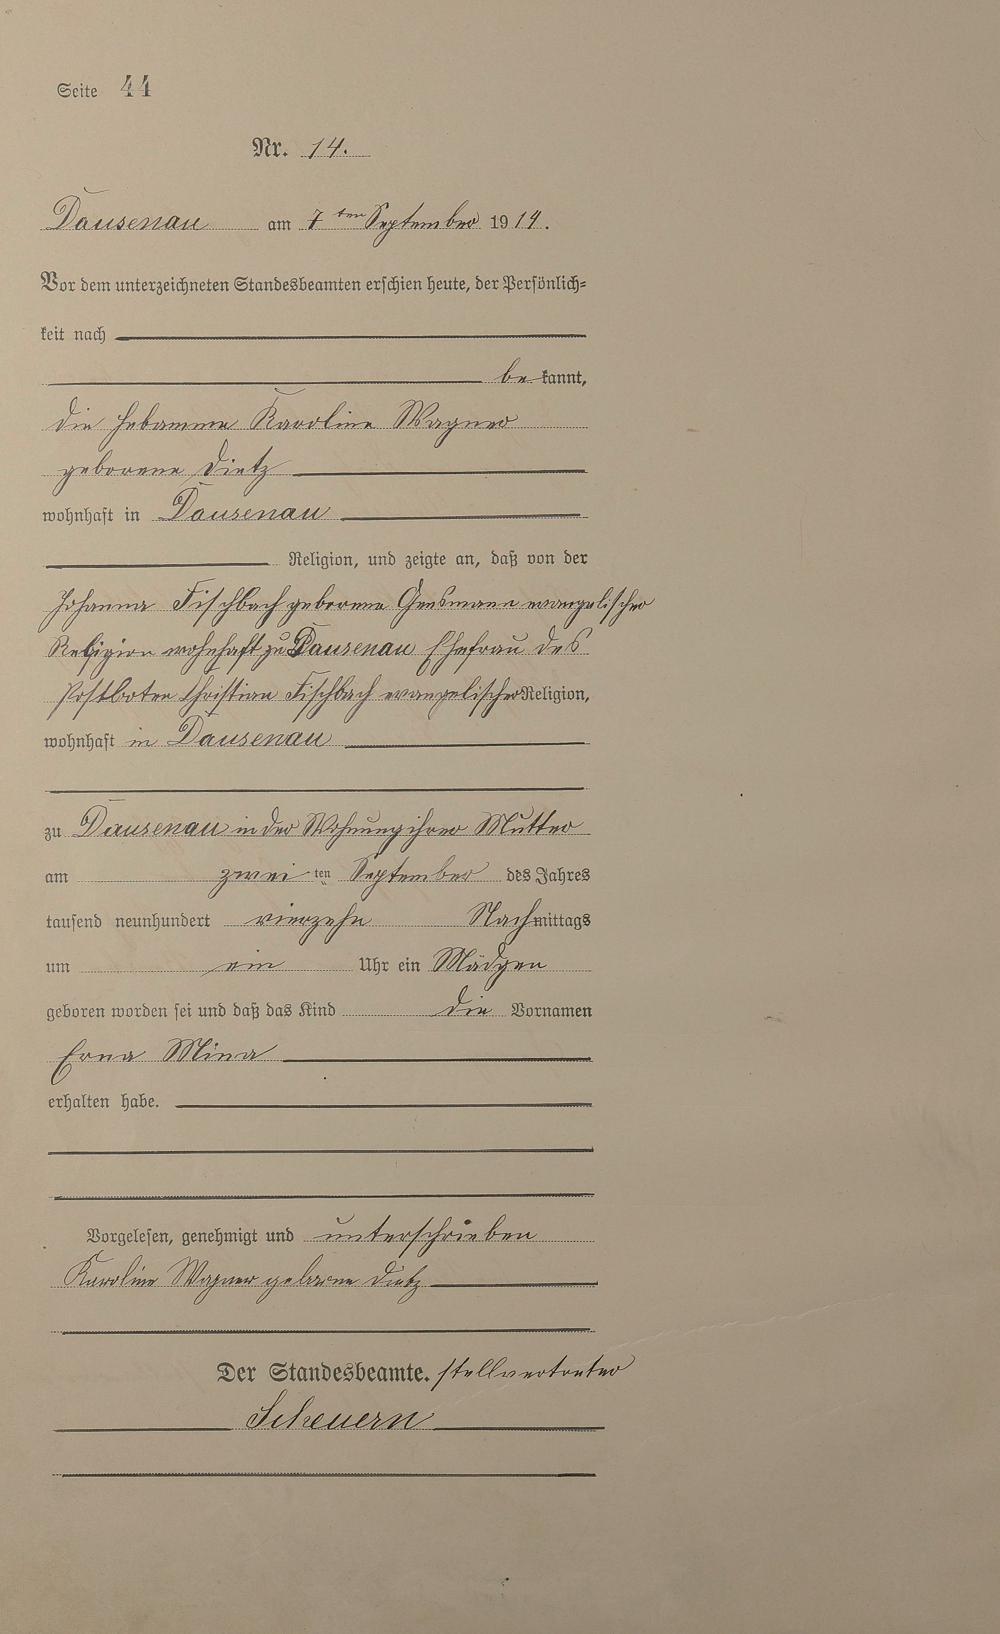 Seite 44
Nr. 14.
Dausenau am 7ten September 1914.
Vor dem unterzeichneten Standesbeamten erschien heute, der Persönlich=
keit nach
be kannt,
die Hebamme Karoline Wagner
geborene Dietz
wohnhaft in Dausenau
Religion, und zeigte an, daß von der
Johanna Fischbach geborene Gensmann evangelischer
Religion wohnhaft zu Dausenau Ehefrau des
Postboten Christian Fischbach evangelischer Religion,
wohnhaft in Dausenau
zu Dausenau in der Wohnung ihrer Mutter
am zwei ten September des Jahres
tausend neunhundert vierzehn Nachmittags
um ein Uhr ein Mädgen
geboren worden sei und daß das Kind die Vornamen
Erna Mina
erhalten habe.
Vorgelesen, genehmigt und unterschrieben
Karoline Wagner geborne Dietz
Der Standesbeamte. stellvertreter
Scheuern